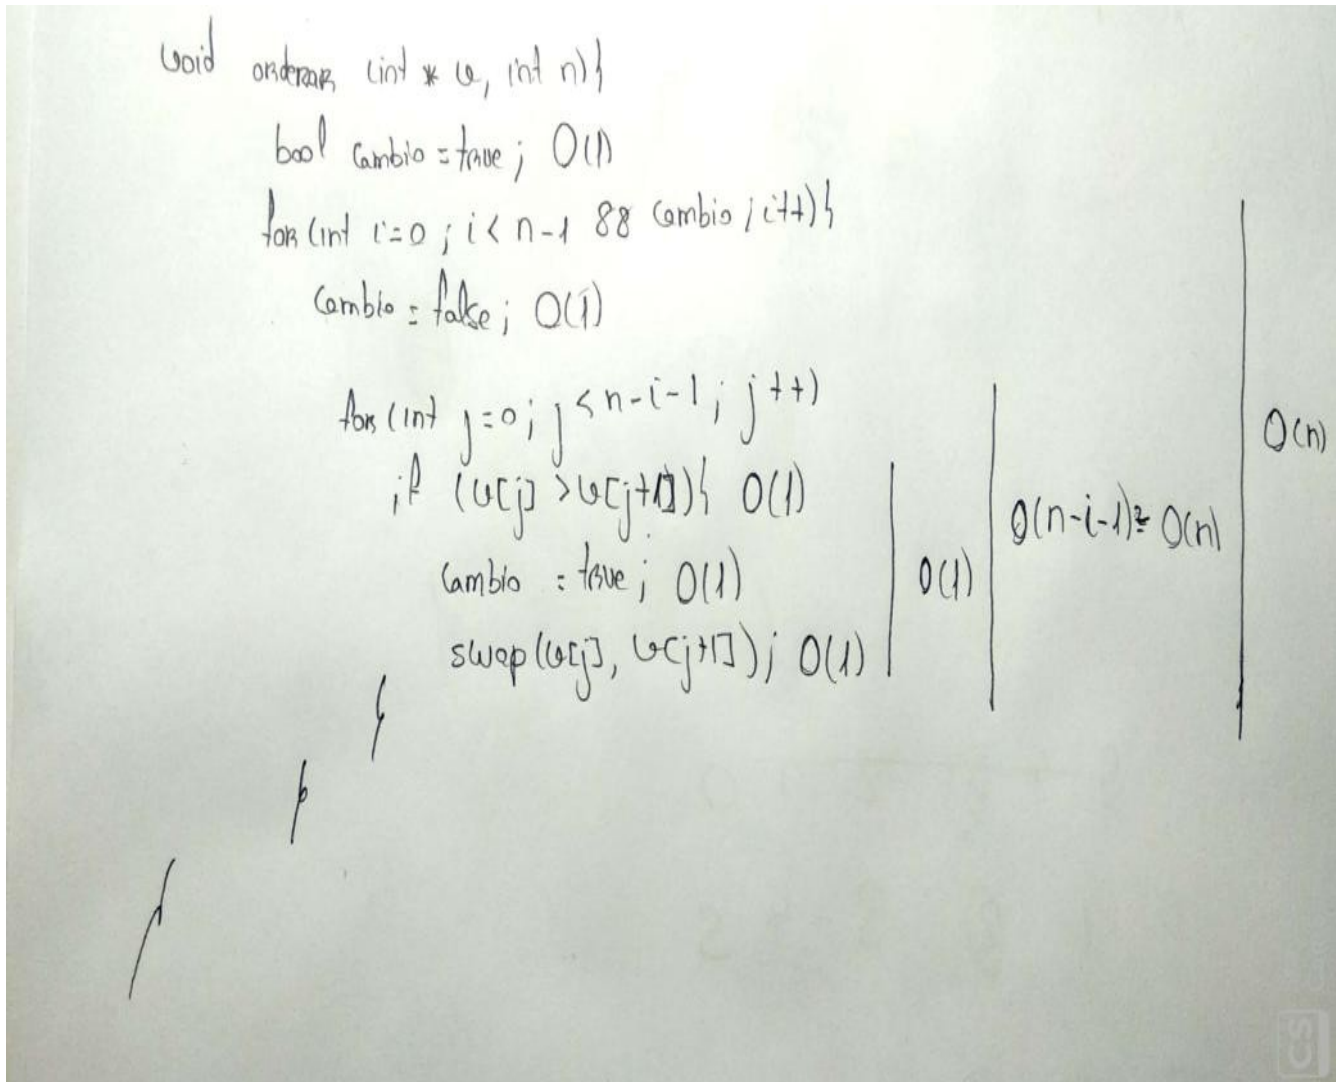 void ordenar (int * v, int n){
bool cambio = true; O(1)
for (int i=0; i< n-1 && cambio; i++){
cambio = false; O(1)
for (int j=0; j<n-i-1; j++)
if (v[j] >v[j+1]){ O(1)
cambio = true; O(1)
swap(v[j], v[j+1]); O(1)
}
}
}
O(1)
O(n-i-1) ≅ O(n)
O(n)